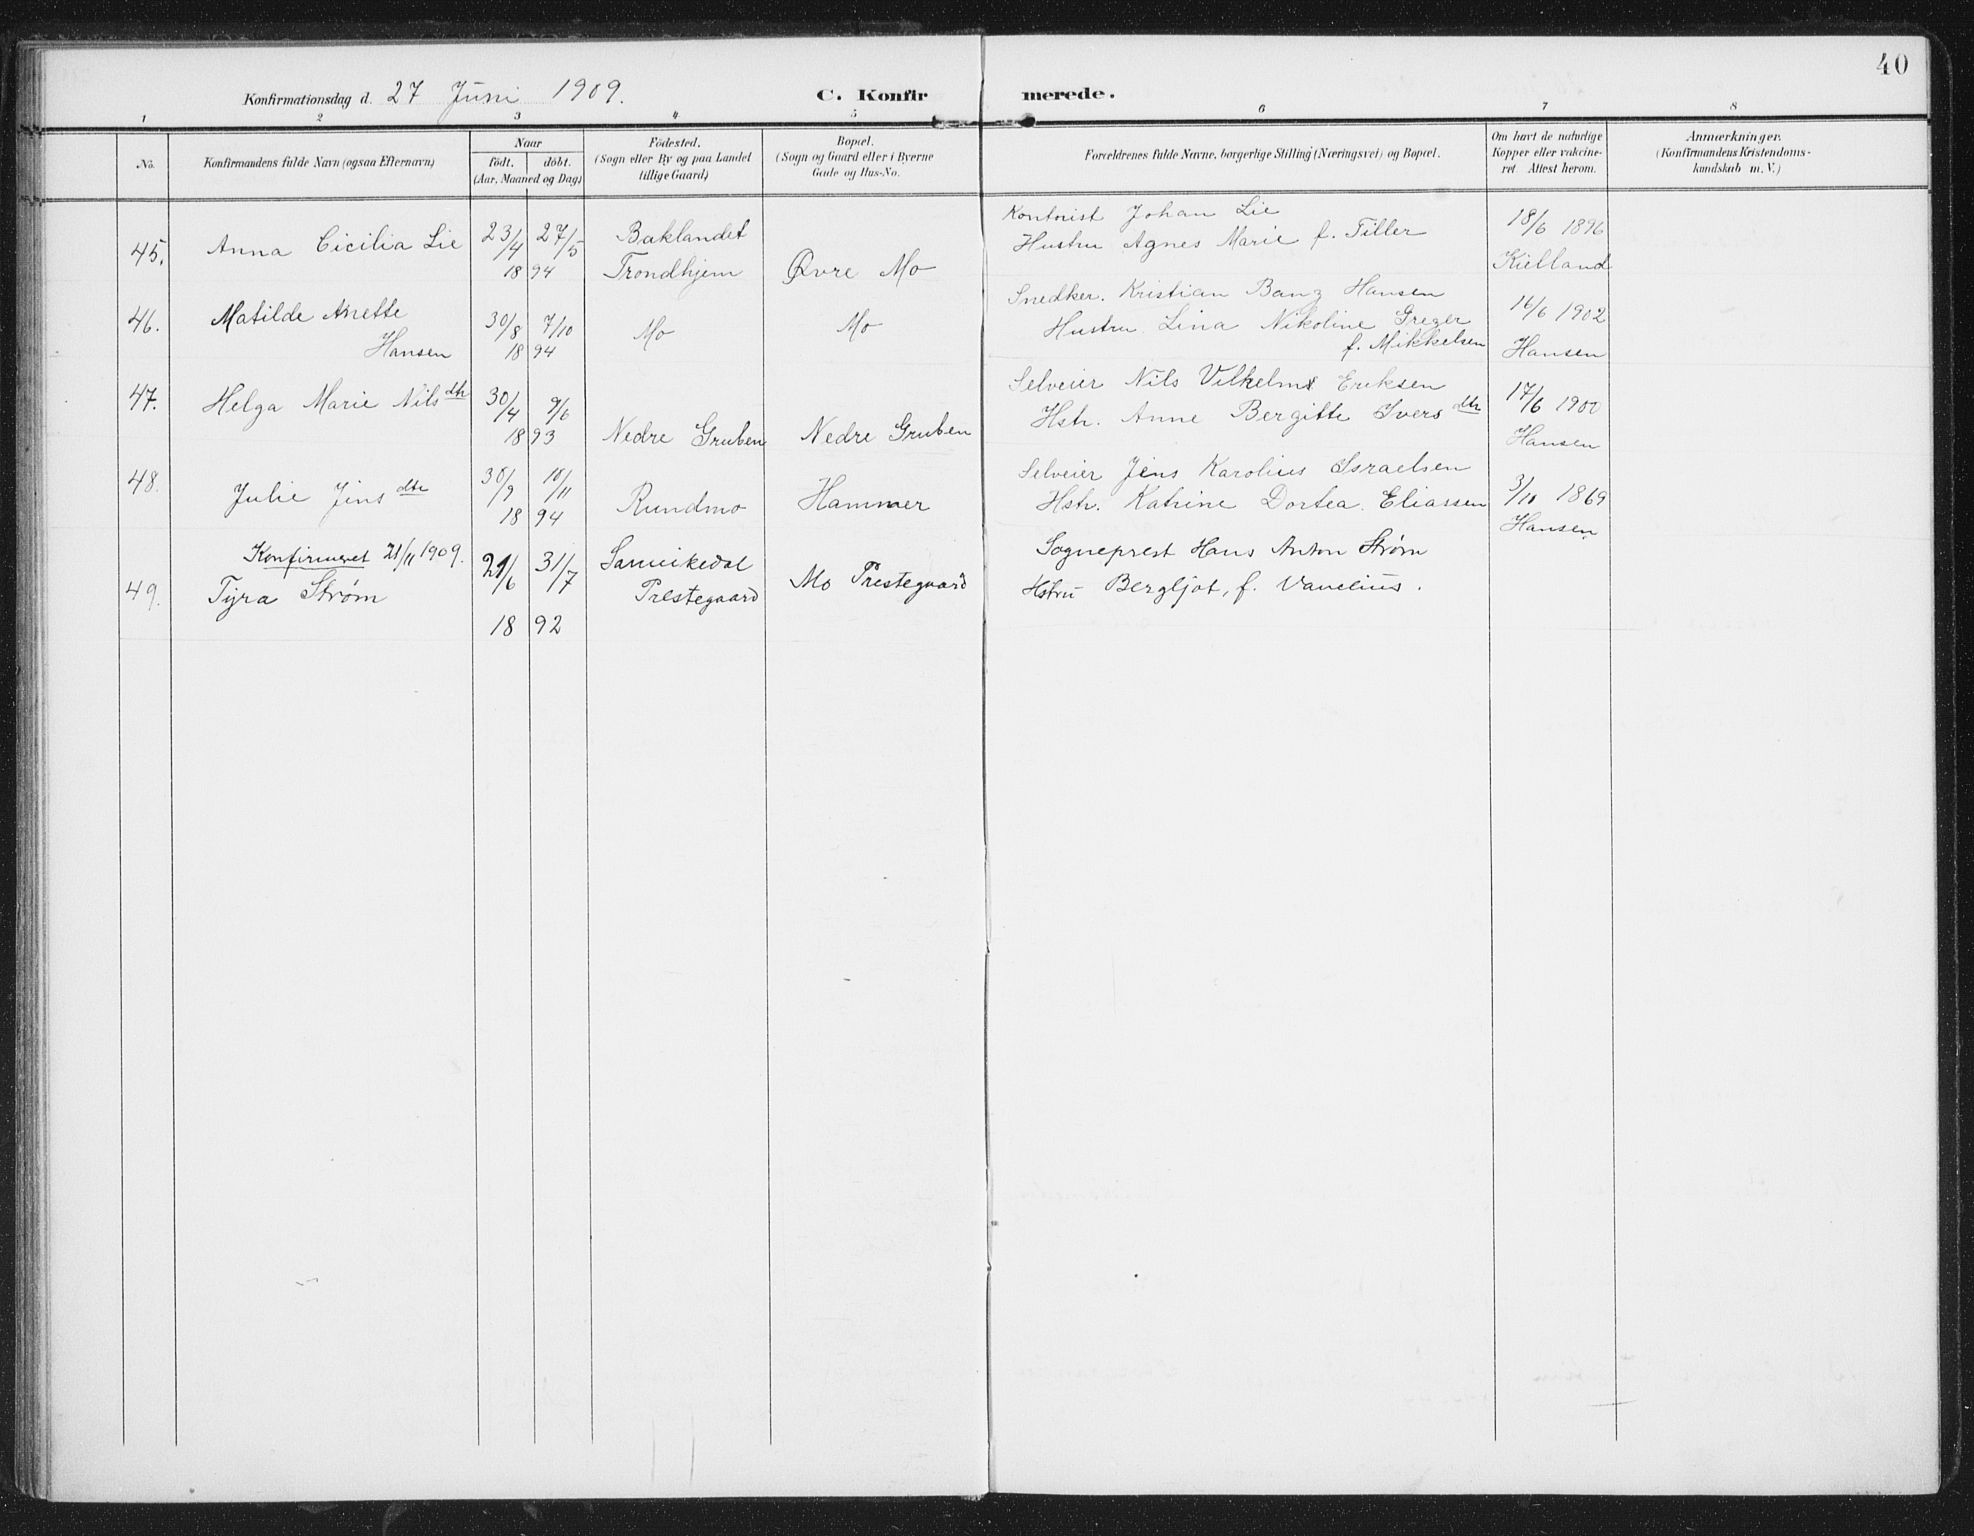 40
Konfirmationsdag d. 27 Juni 1909. C. Konfir merede.
1 2 3 4 5 6 7 8
No. Konfirmandens fulde Navn (ogsaa Efternavn) Naar født. døbt. (Aar, Maaned og Dag) Födested. (Sogn eller By og paa Landet tillige Gaard) Bopæl. (Sogn og Gaard eller i Byerne Gade og Hus-No. Forældrenes fulde Navne, borgerlige Stilling (Næringsvei) og Bopæl. Om havt de naturlige Kopper eller vakcineret. Attest herom. Anmærkninger. (Konfirmandens Kristendomskundskab m. V.)
45. Anna Cicilia Lie 23/4 27/5 1894 Baklandet Trondhjem Øvre Mo
Kontorist Johan Lie
Hustru Agnes Marie f. Tiller
18/6 1896
Kielland
46. Matilde Anette
Hansen
30/8 7/10 1894 Mo Mo
Snedker. Kristian Bang Hansen
Hustru Lina Nikoline Greger
f. Mikkelsen
16/6 1902
Hansen
47. Helga Marie Nilsdtr 30/4 9/6 1893 Nedre Gruben Nedre Gruben
Selveier Nils Vilhelm Eriksen
Hstr. Anne Bergitte Iversdtr
17/6 1900
Hansen
48. Julie Jensdtr 30/9 10/11 1894 Rundmo Hammer
Selveier Jens Karolius Israelsen
Hstr. Katrine Dortea Eliassen
3/11 1869
Hansen
Konfirmeret 21/11 1909.
49. Tyra Strøm 21/6 31/7 1892
Prestegaard Mo Prestegaard
Sogneprest Hans Anton Strøm
Hstru Bergljot, f.